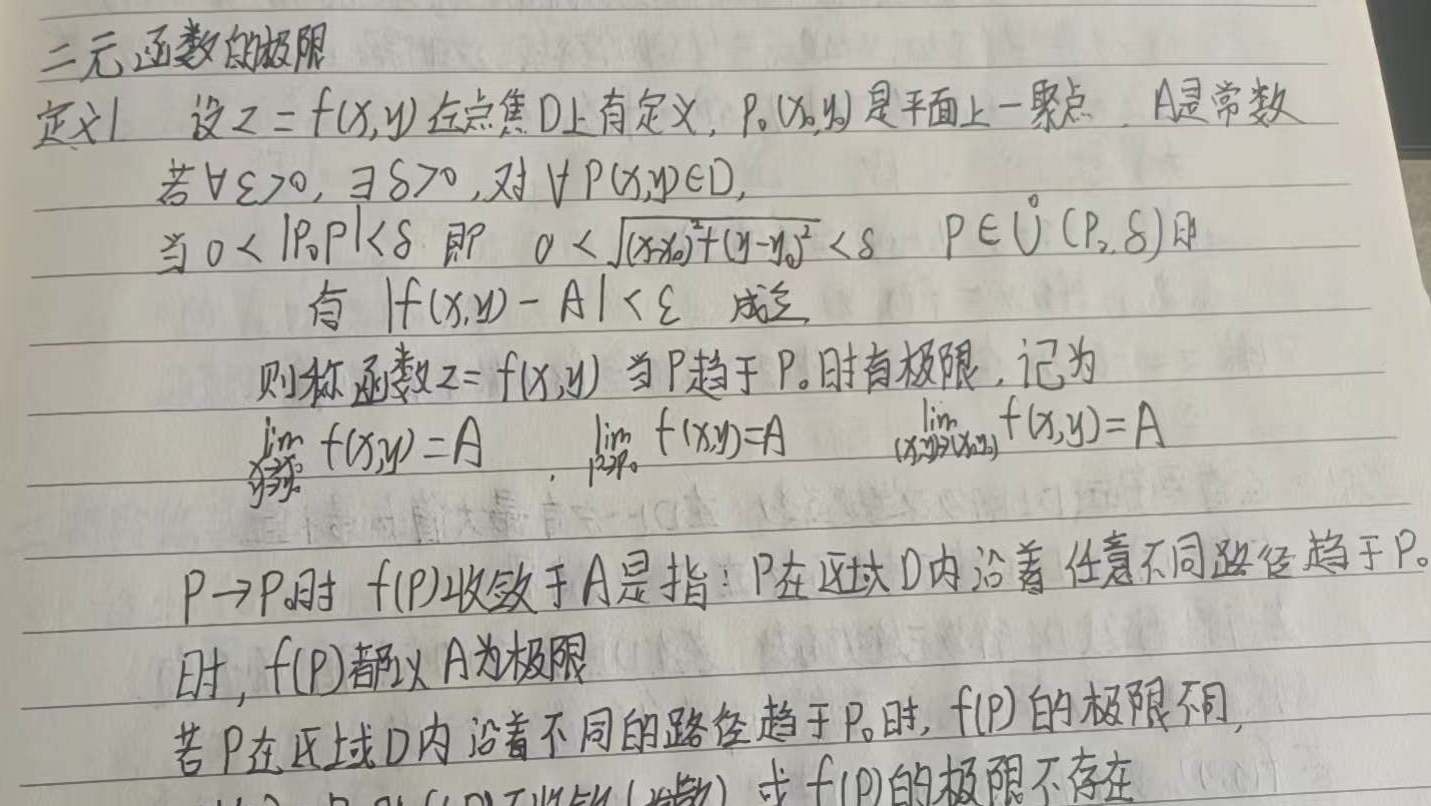 二元函数的极限
定义1 设z=f(x,y)在点集D上有定义,P₀(x₀,y₀)是平面上一聚点,A是常数
若∀ε>0,∃δ>0,对∀P(x,y)∈D,
当0<|P₀P|<δ 即 0<√((x-x₀)²+(y-y₀)²)<δ P∈Ů(P₀,δ)时
有|f(x,y)-A|<ε 成立
则称函数z=f(x,y)当P趋于P₀时有极限,记为
lim x→x₀ y→y₀ f(x,y)=A , lim P→P₀ f(x,y)=A lim (x,y)→(x₀,y₀) f(x,y)=A
P→P₀时 f(P)收敛于A是指:P在区域D内沿着任意不同路径趋于P₀
时,f(P)都以A为极限
若P在区域D内沿着不同的路径趋于P₀时,f(P)的极限不同,
或f(P)的极限不存在